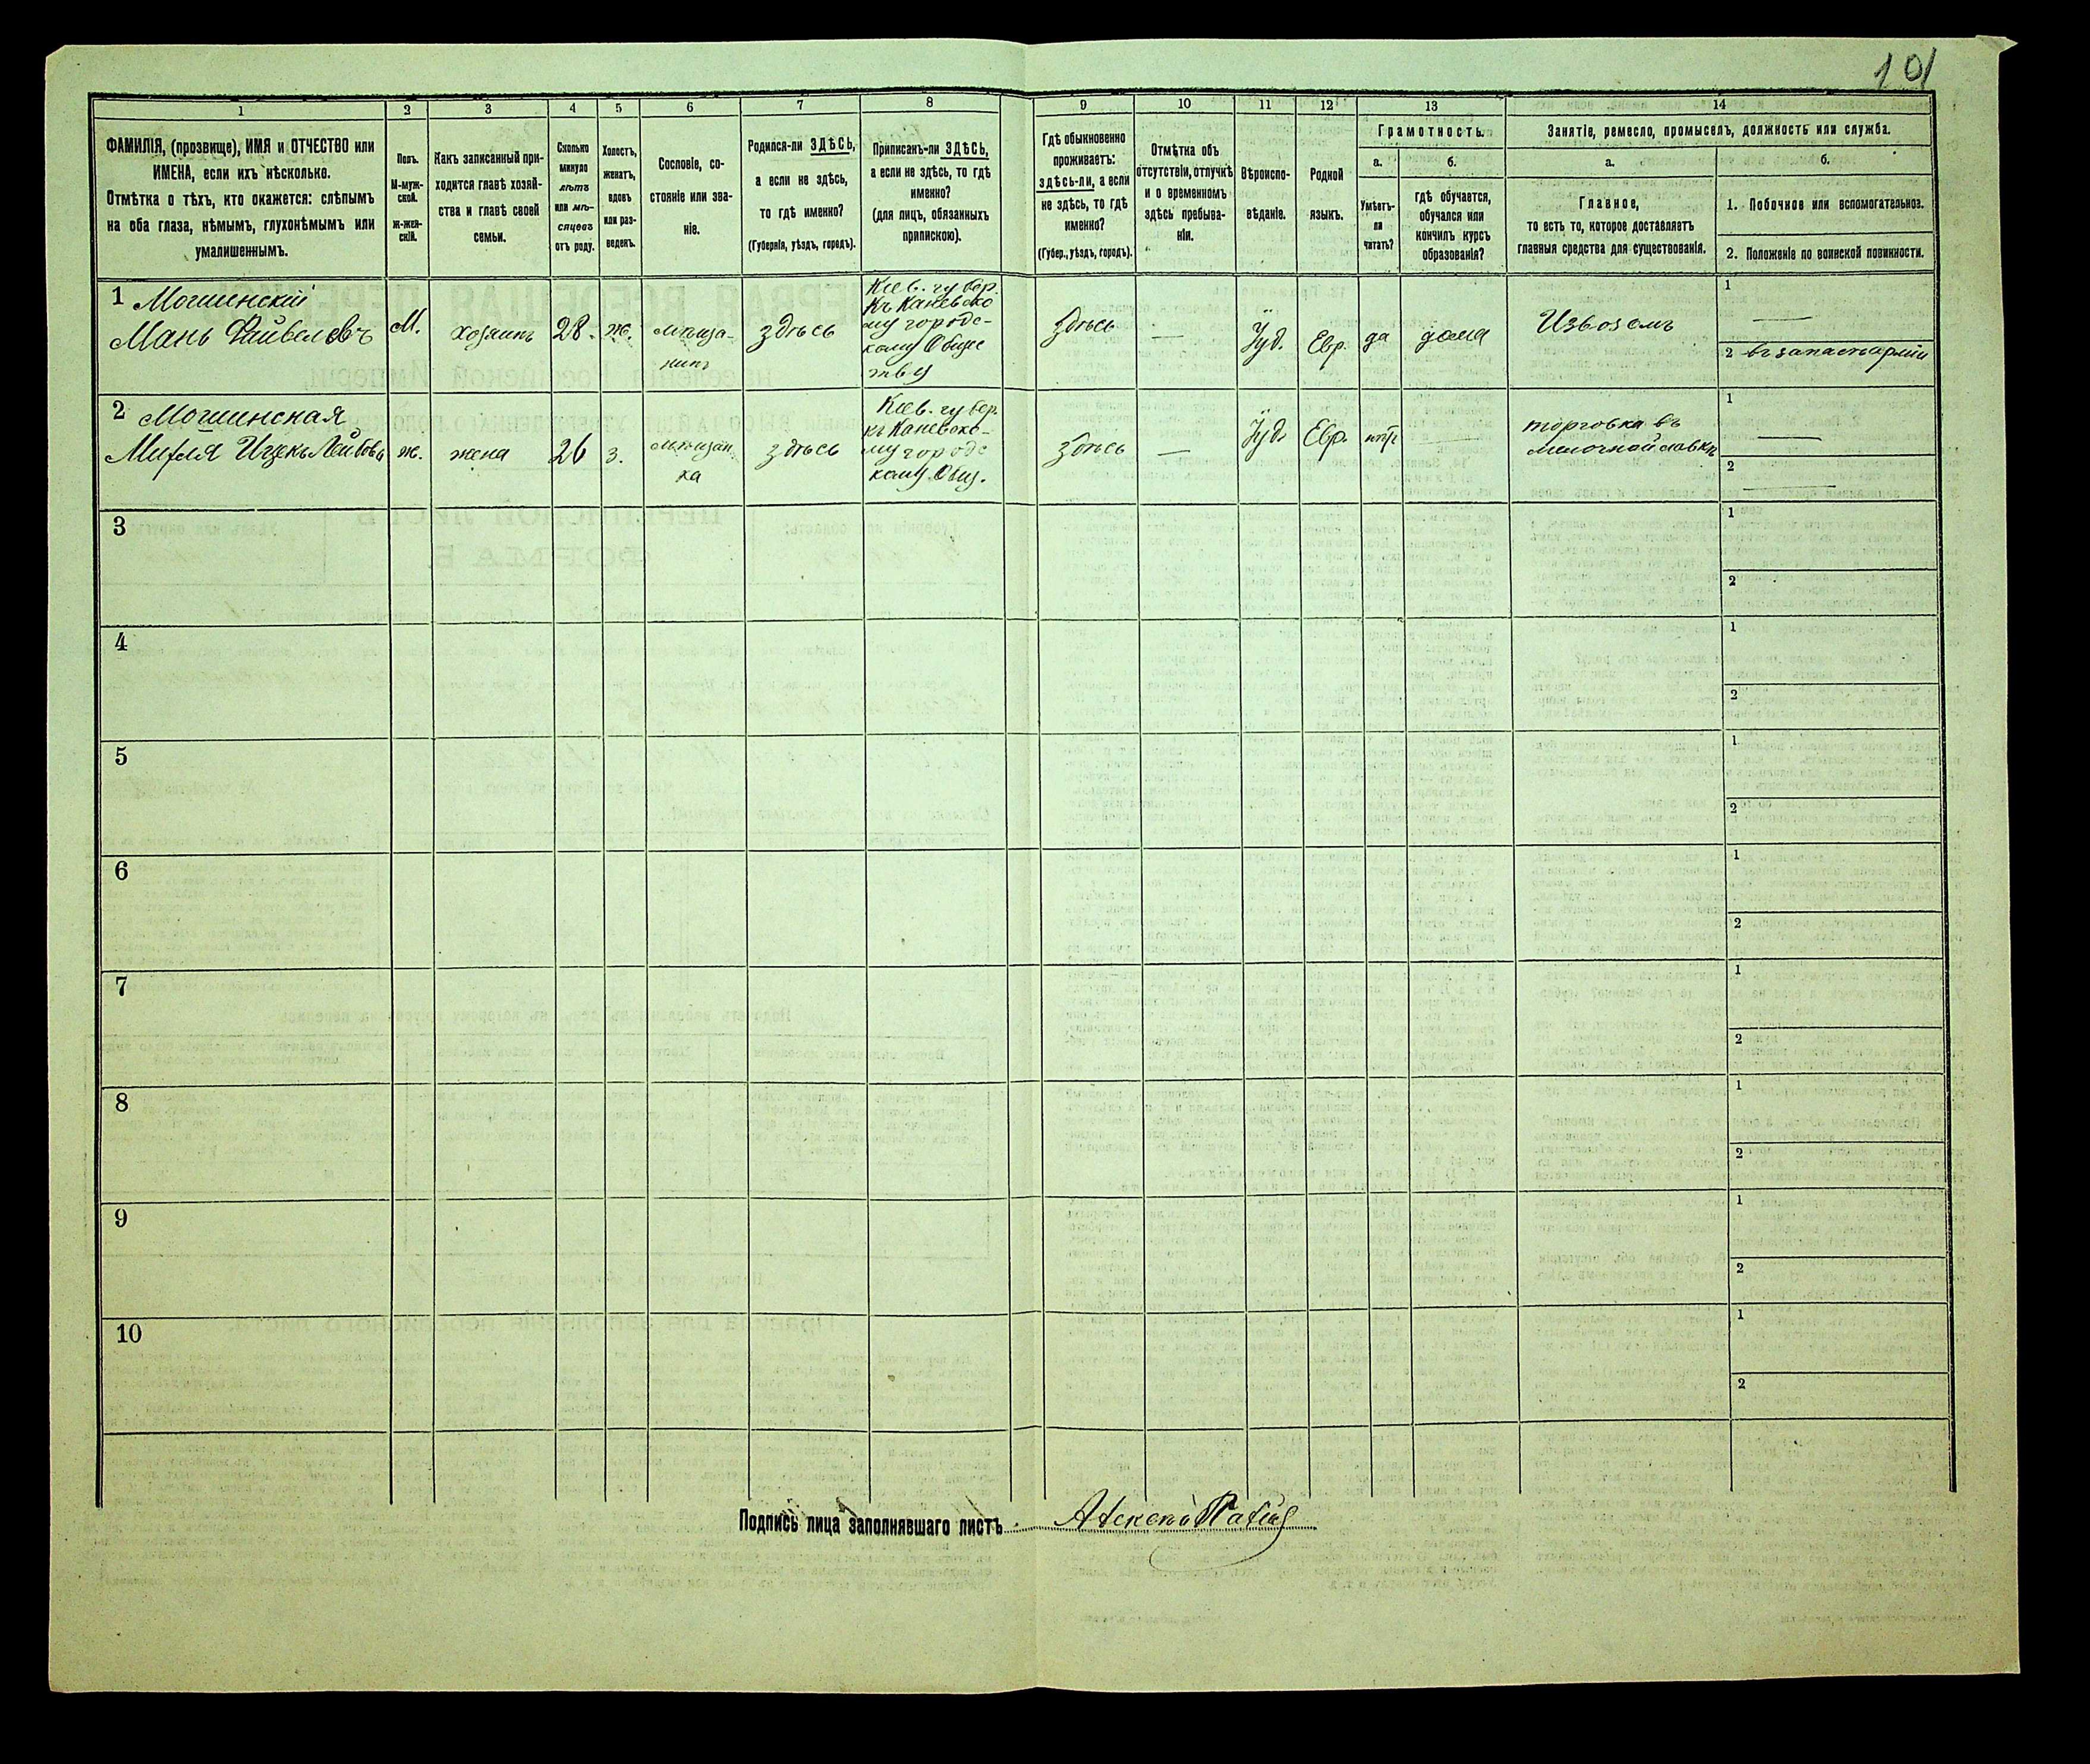 101
1
2
3
4
5
6
7
8
9
10
11
12
13
14
ФАМИЛІЯ, (прозвище), ИМЯ и ОТЧЕСТВО или
ИМЕНА, если ихъ нѣсколько.
Отмѣтка о тѣхъ, кто окажется: слѣпымъ
на оба глаза, нѣмымъ, глухонѣмымъ или
умалишеннымъ.
Полъ.
М-муж-
ской.
Ж-жен-
скій.
Какъ записанный при-
ходится главѣ хозяй-
ства и главѣ своей
семьи.
Сколько
минуло
лѣтъ
или мѣ-
сяцевъ
отъ роду.
Холостъ,
женатъ,
вдовъ
или раз-
веденъ.
Сословіе, со-
стояніе или зва-
ніе.
Родился-ли ЗДѢСЬ,
а если не здѣсь,
то гдѣ именно?
(Губернія, уѣздъ, городъ).
Приписанъ-ли ЗДѢСЬ,
а если не здѣсь, то гдѣ
именно?
(для лицъ, обязанныхъ
припискою).
Гдѣ обыкновенно
проживаетъ:
здѣсь-ли, а если
не здѣсь, то гдѣ
именно?
(Губер., уѣздъ, городъ).
Отмѣтка объ
отсутствіи, отлучкѣ
и о временномъ
здѣсь пребыва-
ніи.
Вѣроиспо-
вѣданіе.
Родной
языкъ.
Грамотность.
а.
б.
Умѣетъ-
ли
читать?
гдѣ обучается,
обучался или
кончилъ курсъ
образованія?
Занятіе, ремесло, промыселъ, должность или служба.
а.
б.
Главное,
то есть то, которое доставляетъ
главныя средства для существованія.
1. Побочное или вспомогательное.
2. Положеніе по воинской повинности.
1 Могилинскій
Мань Файвелевъ
М.
хозяинъ
28.
ж.
мѣща-
нинъ
здѣсь
Кіев. губер.
Къ Каневско
му городс-
кому Общес
тву
здѣсь
—
Іуд.
Евр.
да
дома
Извозомъ
1
—
2 въ запасѣ арміи
2 Могилинская
Ицекъ Лейбова
ж.
жена
26
з.
мѣщан
ка
здѣсь
Кіев. губер.
къ Каневско-
му городс
кому Общ.
здѣсь
—
Іуд.
Евр.
нѣтъ
—
торговка въ
мелочной лавкѣ
1
—
2
—
3
1
2
4
1
2
5
1
2
6
1
2
7
1
2
8
1
2
9
1
2
10
1
2
Подпись лица заполнявшаго листъ